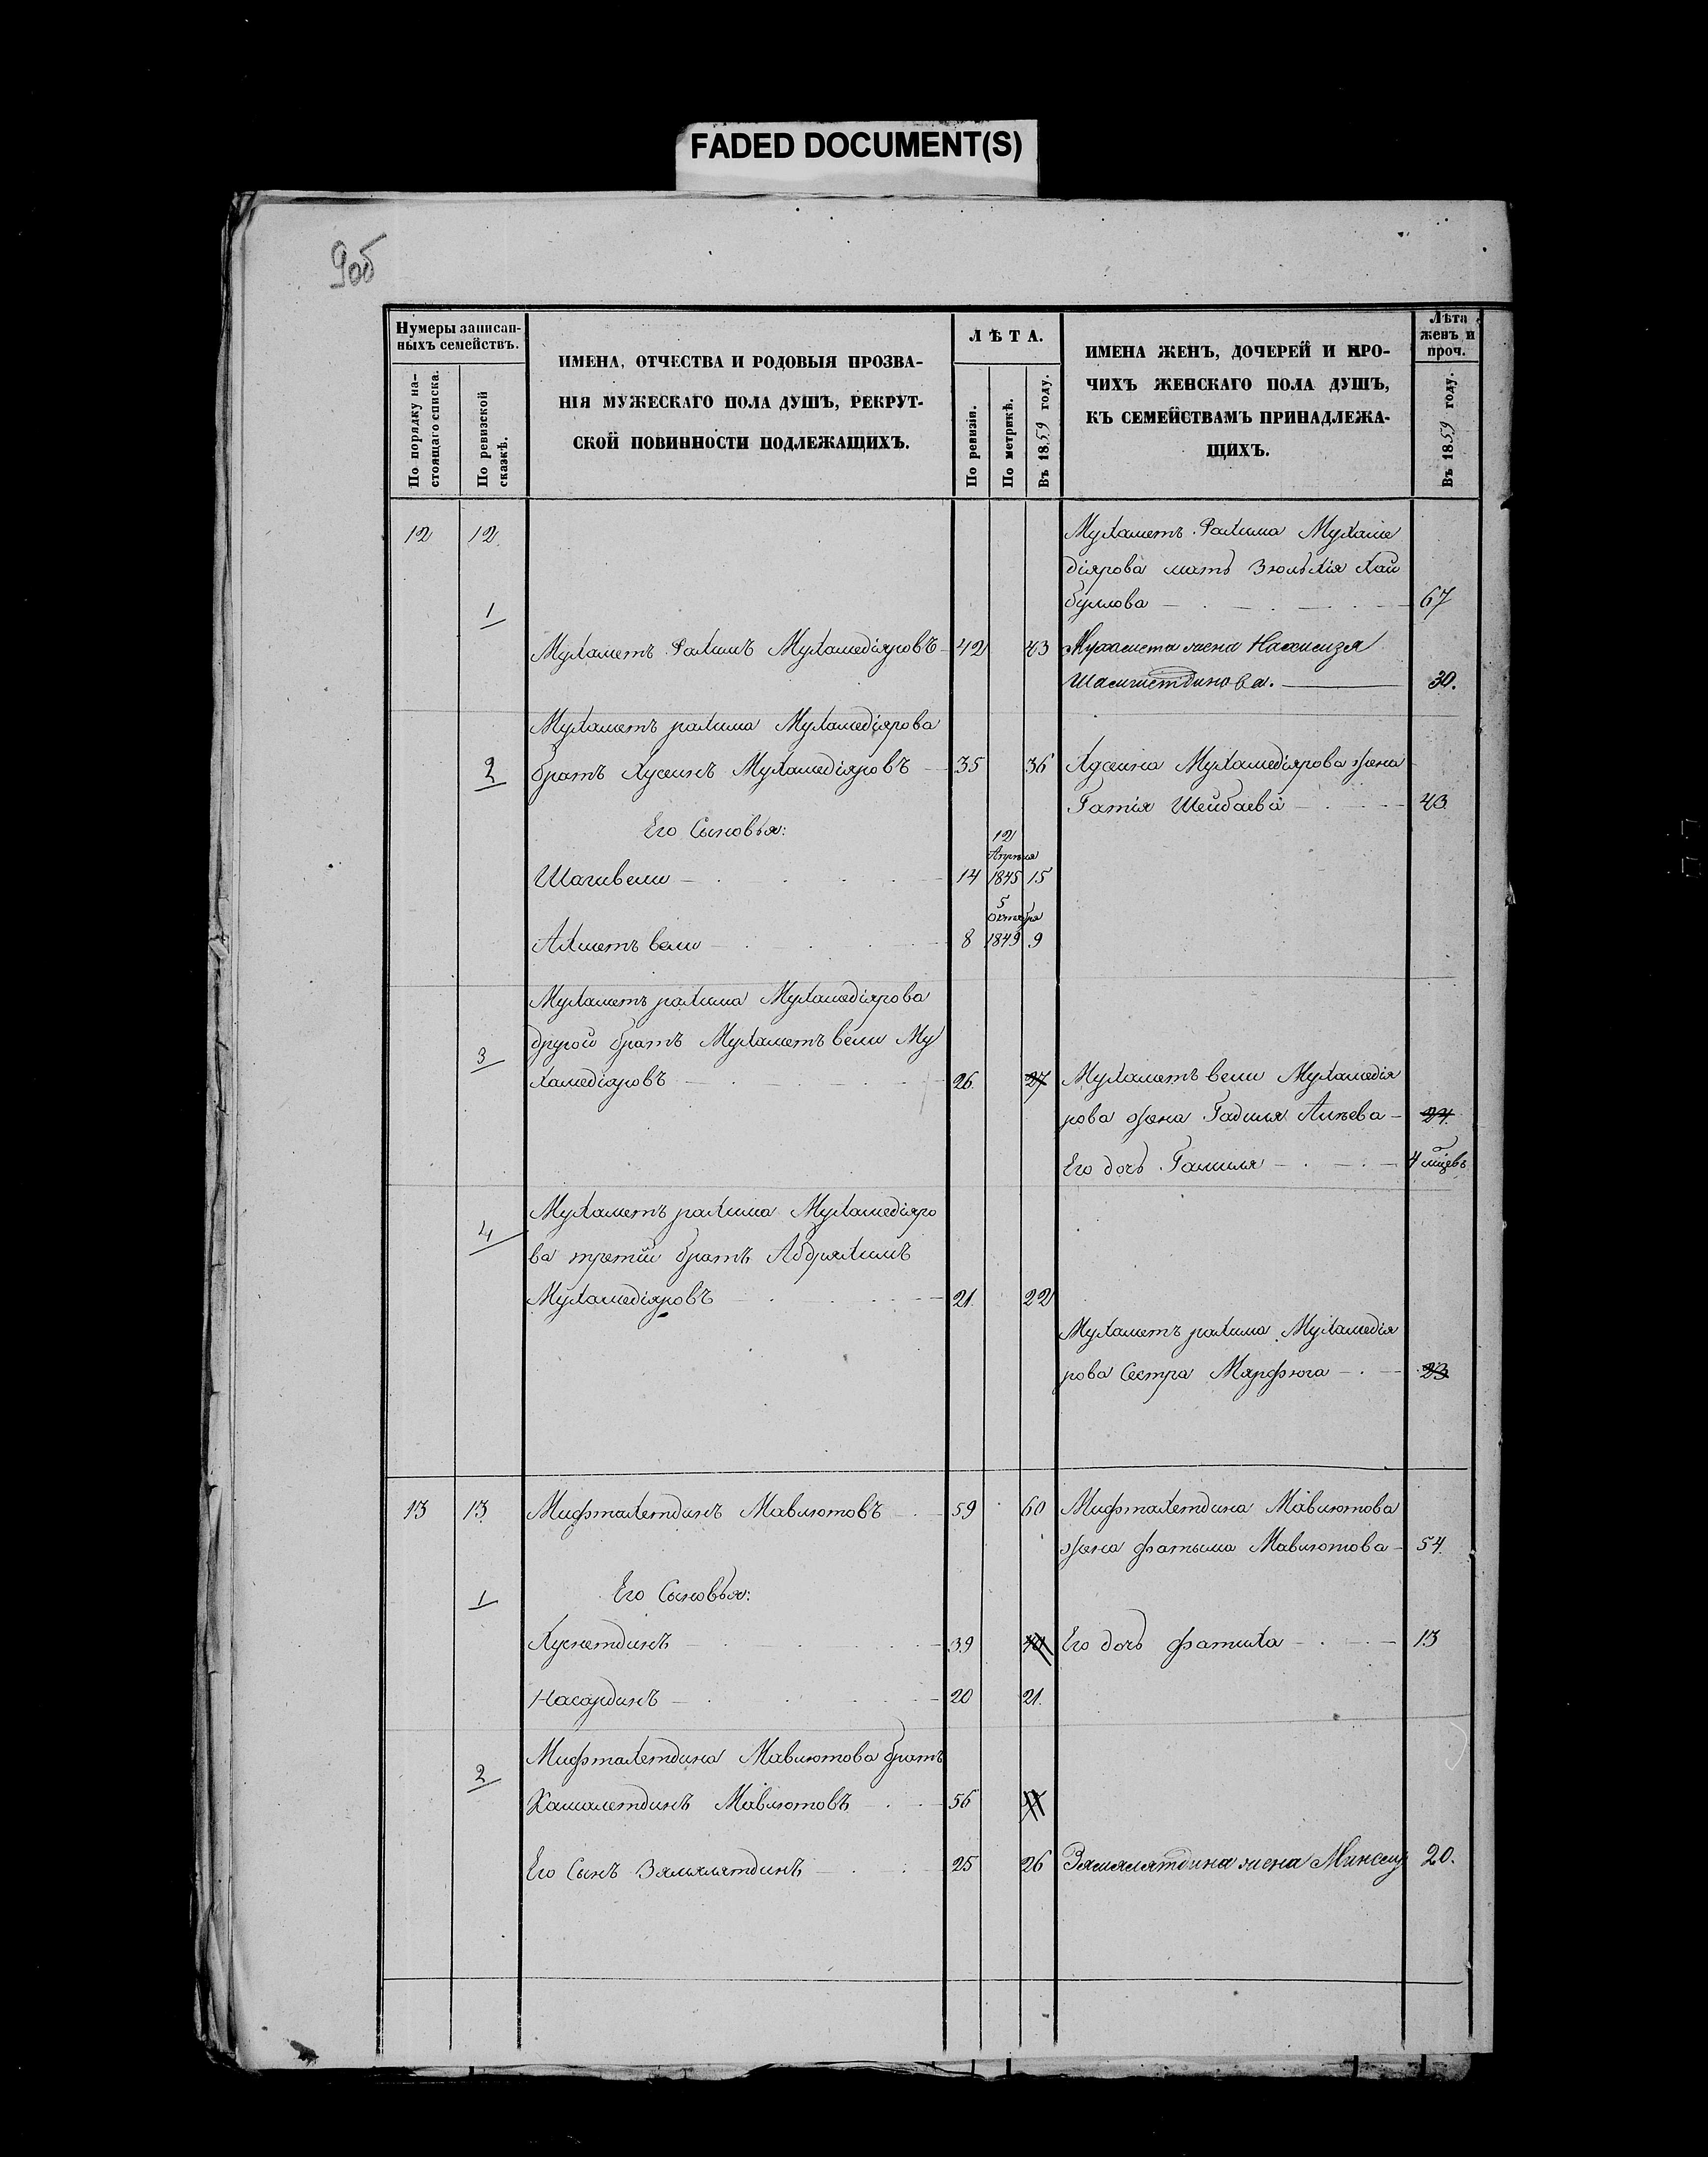 FADED DOCUMENT(S)
9об
Нумеры записан-
ныхъ семействъ.
По порядку на-
стоящаго списка.
По ревизской
сказкѣ.
ИМЕНА, ОТЧЕСТВА И РОДОВЫЯ ПРОЗВА-
НІЯ МУЖЕСКАГО ПОЛА ДУШЪ, РЕКРУТ-
СКОЙ ПОВИННОСТИ ПОДЛЕЖАЩИХЪ.
ЛѢТА.
По ревизіи.
По метрикѣ.
Въ 1859 году.
ИМЕНА ЖЕНЪ, ДОЧЕРЕЙ И ПРО-
ЧИХЪ ЖЕНСКАГО ПОЛА ДУШЪ,
КЪ СЕМЕЙСТВАМЪ ПРИНАДЛЕЖА-
ЩИХЪ.
Лѣта
женъ и
проч.
Въ 1859 году.
12 12 Мухаметъ Рахима Мухаме
діярова мать Зюльхія Хай
1 буллова 67
Мухаметъ Рахимъ Мухамедіяровъ 42 43 Мухамета жена
Шамшетдинова. 30.
Мухаметъ рахима Мухамедіярова
2 братъ Хусеинъ Мухамедіяровъ 35 36 Хусеина Мухамедіярова жена
Гатія Шеибаева 43
Его Сыновья: 12
Апреля
Шагивели 14 1845 15
5
Октября
Ахметъ вели 8 1849 9
Мухаметъ рахима Мухамедіярова
другой братъ Мухаметъ вели Му
3 хамедіяровъ 26 27 Мухаметъ вели Мухамедія
рова жена Гадиля Алкева 24
Его дочь Галиля 4 мѣсев.
Мухаметъ рахима Мухамедіяро
4 ва третій братъ Абдрахимъ
Мухамедіяровъ 21 22
Мухаметъ рахима Мухамедія
рова Сестра Марфюга 23
13 13 Мифтахетдинъ Мавлютовъ 59 60 Мифтахетдина Мавлютова
жена фатыма Мавлютова 54
1 Его Сыновья:
Хуснетдинъ 39 40 Его дочь фатиха 13
Насардинъ 20 21.
Мифтахетдина Мавлютова братъ
2 Камалетдинъ Мавлютовъ 56
Его Сынъ Зямалятдинъ 25 26 Зямалятдина жена 20.